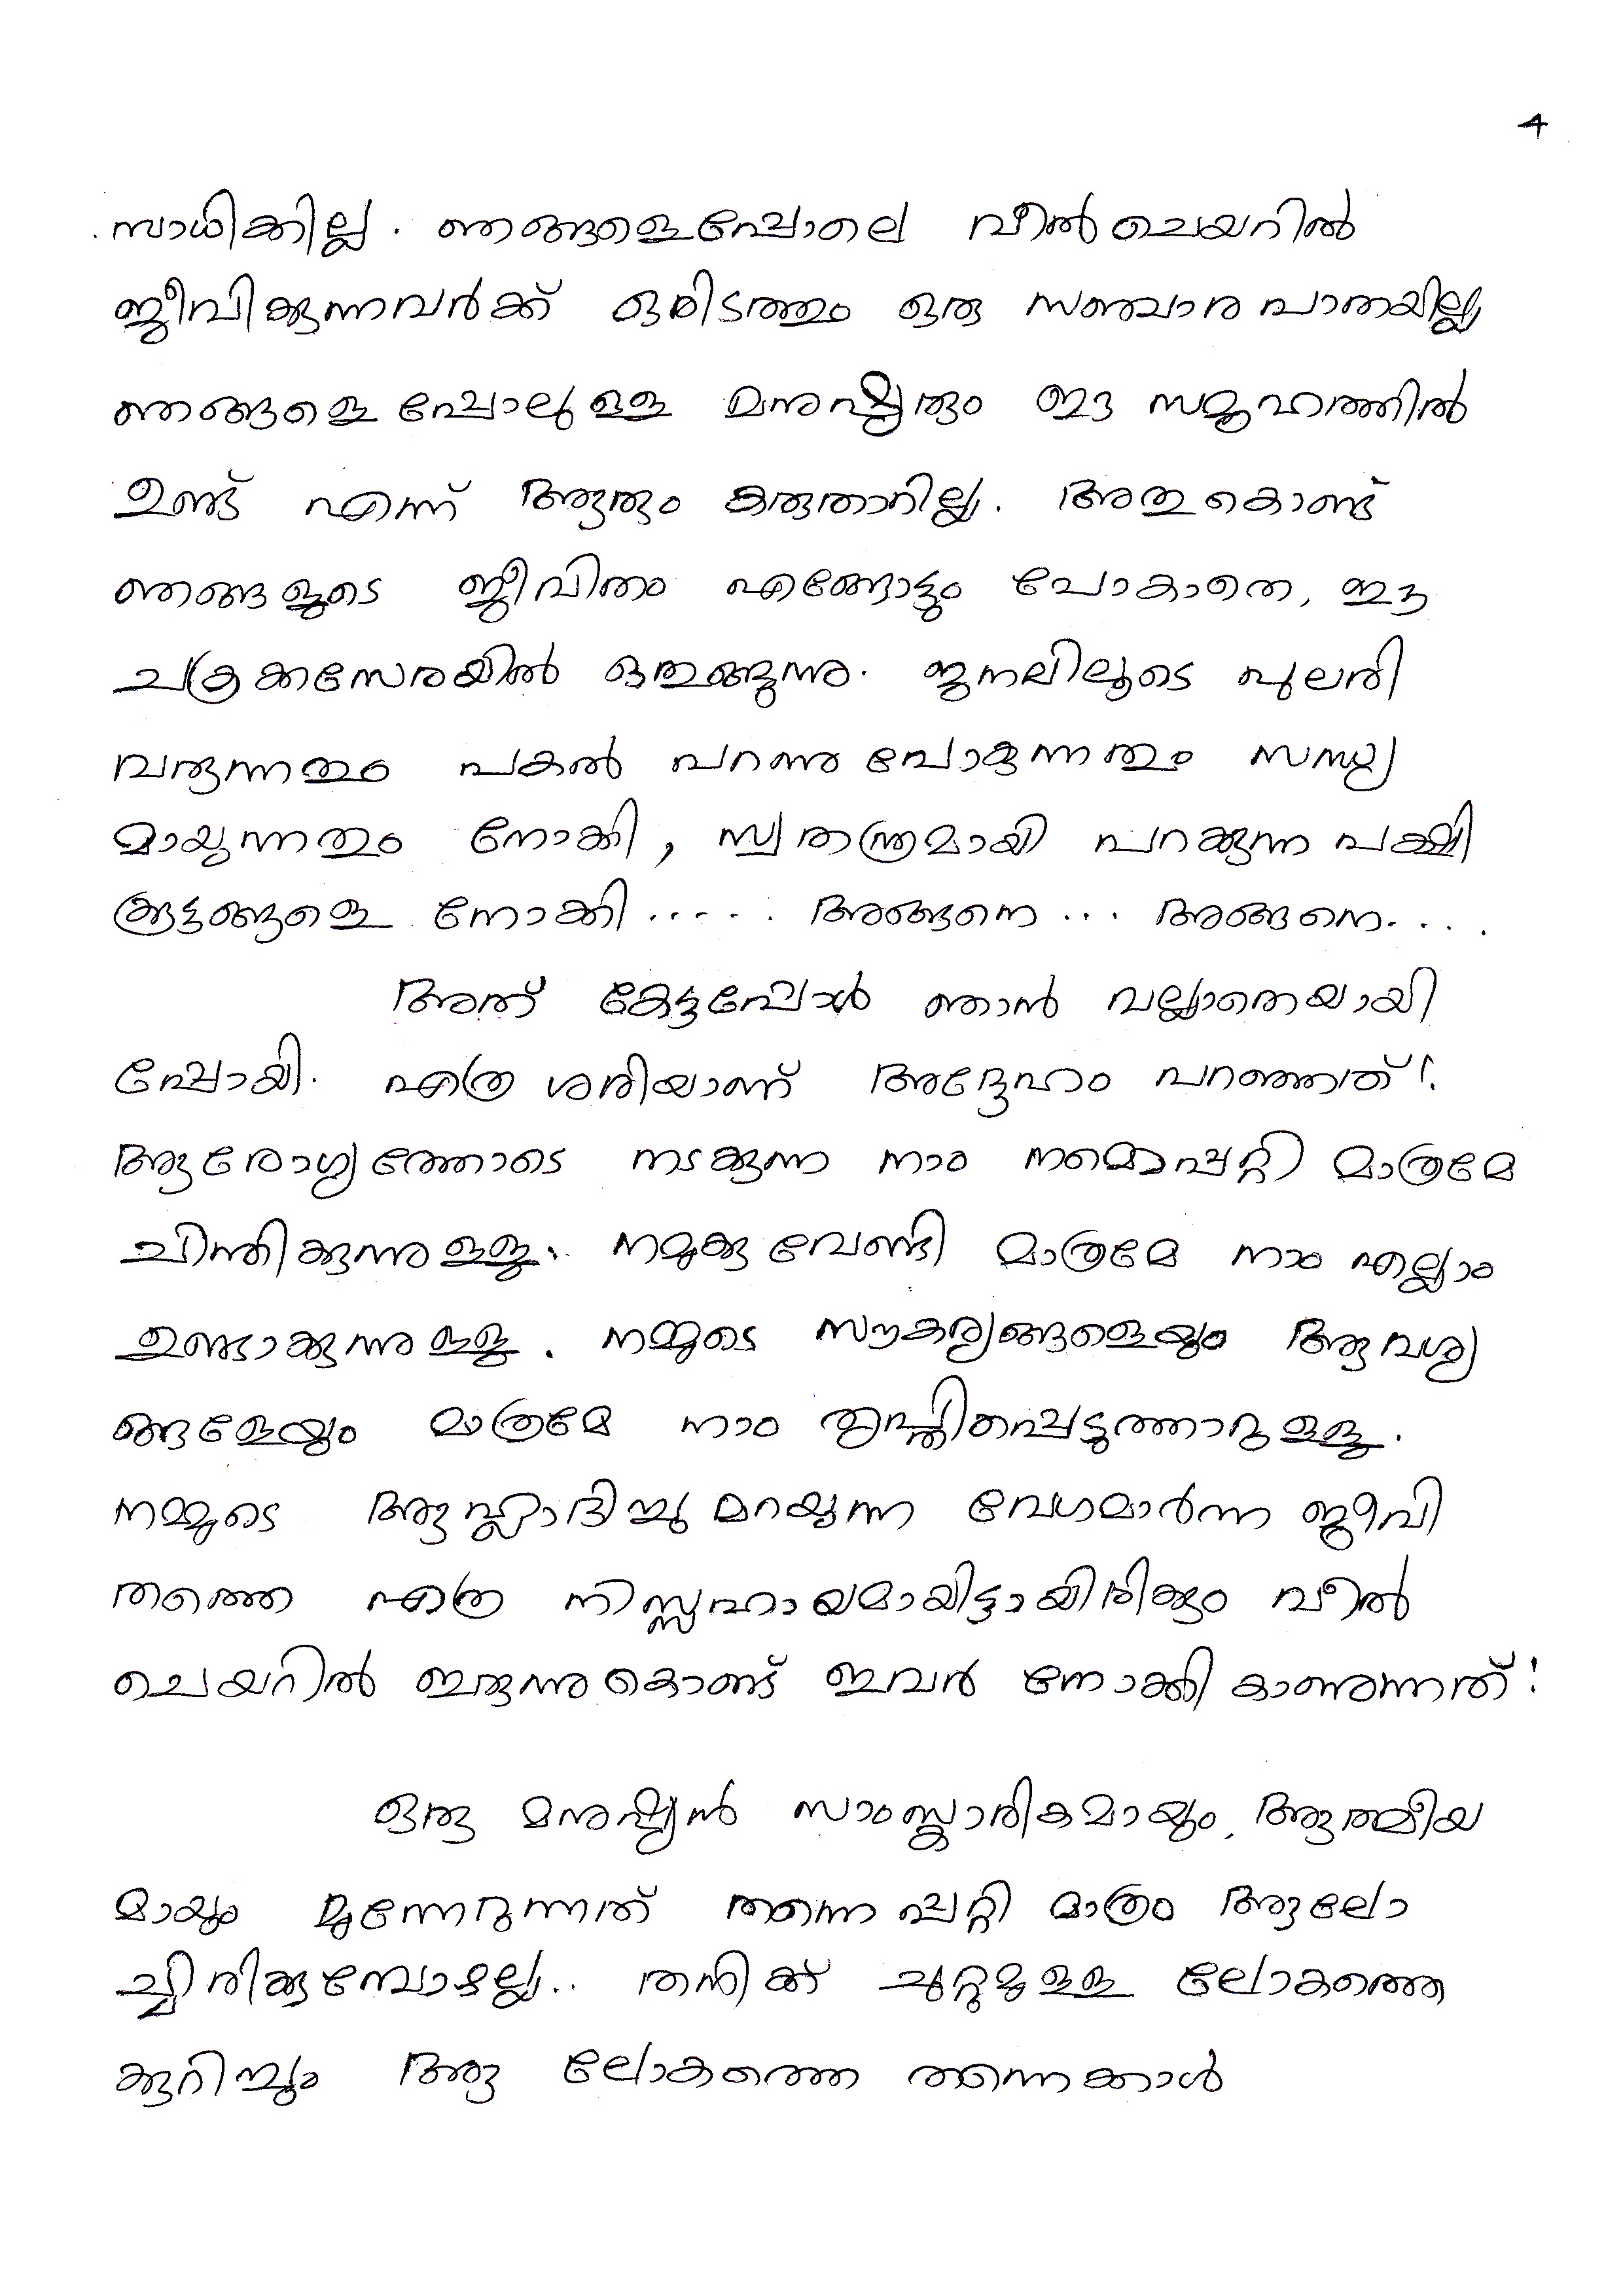 4
സാധിക്കില്ല. ഞങ്ങളെപ്പോലെ വീൽചെയറിൽ
ജീവിക്കുന്നവർക്ക് ഒരിടത്തും ഒരു സഞ്ചാര പാതയില്ല
ഞങ്ങളെപ്പോലുള്ള മനുഷ്യരും ഈ സമൂഹത്തിൽ
ഉണ്ട് എന്ന് ആരും കരുതാറില്ല. അതുകൊണ്ട്
ഞങ്ങളുടെ ജീവിതം എങ്ങോട്ടും പോകാതെ, ഈ
ചക്രക്കസേരയിൽ ഒതുങ്ങുന്നു. ജനലിലൂടെ പുലരി
വരുന്നതും പകൽ പറന്നു പോകുന്നതും സന്ധ്യ
മായുന്നതും നോക്കി, സ്വതന്ത്രമായി പറക്കുന്ന പക്ഷി
ക്കൂട്ടങ്ങളെ നോക്കി..... അങ്ങനെ... അങ്ങനെ....
അത് കേട്ടപ്പോൾ ഞാൻ വല്ലാതെയായി
പ്പോയി. എത്ര ശരിയാണ് അദ്ദേഹം പറഞ്ഞത്!.
ആരോഗ്യത്തോടെ നടക്കുന്ന നാം നമ്മെപ്പറ്റി മാത്രമേ
ചിന്തിക്കുന്നുള്ളൂ.. നമുക്കു വേണ്ടി മാത്രമേ നാം എല്ലാം
ഉണ്ടാക്കുന്നുള്ളൂ. നമ്മുടെ സൗകര്യങ്ങളെയും ആവശ്യ
ങ്ങളേയും മാത്രമേ നാം തൃപ്തിപ്പെടുത്താറുള്ളൂ.
നമ്മുടെ ആഹ്ലാദിച്ചു മറയുന്ന വേഗമാർന്ന ജീവി
തത്തെ എത്ര നിസ്സഹായമായിട്ടായിരിക്കും വീൽ
ചെയറിൽ ഇരുന്നുകൊണ്ട് ഇവർ നോക്കി കാണുന്നത്!
ഒരു മനുഷ്യൻ സാംസ്കാരികമായും, ആത്മീയ
മായും മുന്നേറുന്നത് തന്നെപ്പറ്റി മാത്രം ആലോ
ച്ചിരിക്കുമ്പോഴല്ല.. തനിക്ക് ചുറ്റുമുള്ള ലോകത്തെ
ക്കുറിച്ചും ആ ലോകത്തെ തന്നെക്കാൾ